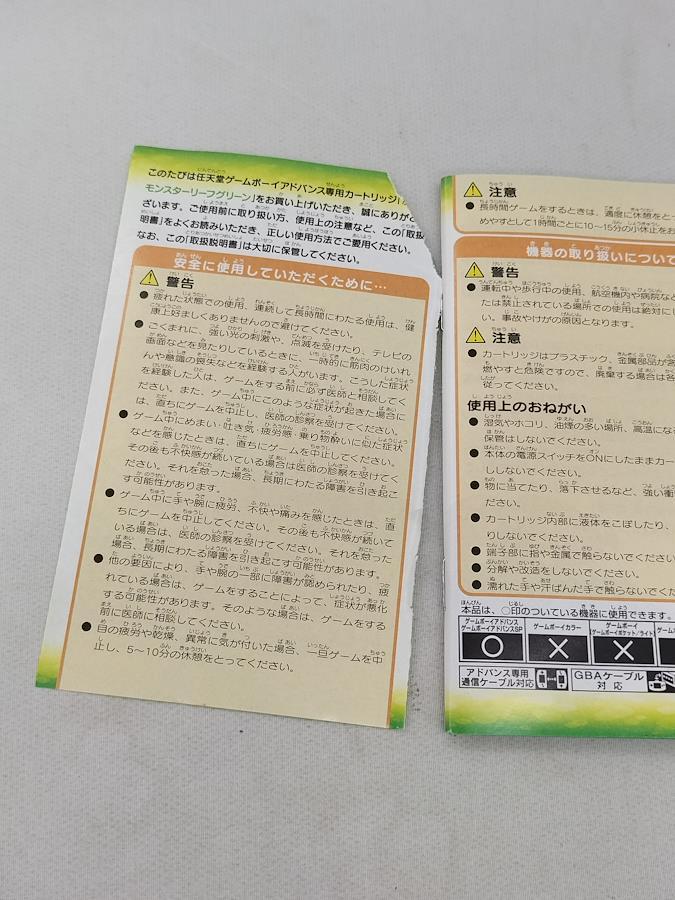 このたびは任天堂ゲームボーイアドバンス専用カートリッジ「
モンスターリーフグリーン」をお買い上げいただき、誠にありがと
ざいます。ご使用前に取り扱い方、使用上の注意など、この「取扱
明書」をよくお読みいただき、正しい使用方法でご愛用ください。
なお、この「取扱説明書」は大切に保管してください。
安全に使用していただくために…
警告
●疲れた状態での使用、連続して長時間にわたる使用は、健
康上好ましくありませんので避けてください。
●ごくまれに、強い光の刺激や、点滅を受けたり、テレビの
画面などを見たりしているときに、一時的に筋肉のけいれ
んや意識の喪失などを経験する人がいます。こうした症状
を経験した人は、ゲームをする前に必ず医師と相談してく
ださい。また、ゲーム中にこのような症状が起きた場合に
は、直ちにゲームを中止し、医師の診察を受けてください。
●ゲーム中にめまい・吐き気・疲労感・乗り物酔いに似た症状
などを感じたときは、直ちにゲームを中止してください。
その後も不快感が続いている場合は医師の診察を受けてく
ださい。それを怠った場合、長期にわたる障害を引き起こ
す可能性があります。
●ゲーム中に手や腕に疲労、不快や痛みを感じたときは、直
ちにゲームを中止してください。その後も不快感が続いて
いる場合は、医師の診察を受けてください。それを怠った
場合、長期にわたる障害を引き起こす可能性があります。
●他の要因により、手や腕の一部に障害が認められたり、疲
れている場合は、ゲームをすることによって、症状が悪化
する可能性があります。そのような場合は、ゲームをする
前に医師に相談してください。
●目の疲労や乾燥、異常に気が付いた場合、一旦ゲームを中
止し、5〜10分の休憩をとってください。
注意
●長時間ゲームをするときは、適度に休憩をとっ
めやすとして1時間ごとに10〜15分の小休止をお
機器の取り扱いについて
警告
●運転中や歩行中の使用、航空機内や病院など
たは禁止されている場所での使用は絶対にし
い。事故やけがの原因となります。
注意
●カートリッジはプラスチック、金属部品が含
燃やすと危険ですので、廃棄する場合は各
従ってください。
使用上のおねがい
●湿気やホコリ、油煙の多い場所、高温にな
保管はしないでください。
●本体の電源スイッチをONにしたままカー
ししないでください。
●物に当てたり、落下させるなど、強い衝
ださい。
●カートリッジ内部に液体をこぼしたり、
りしないでください。
●端子部に指や金属で触らないでください
●分解や改造をしないでください。
●濡れた手や汗ばんだ手で触らないでくだ
本品は、○印のついている機器に使用できます。
ゲームボーイアドバンス
ゲームボーイアドバンスSP
○
ゲームボーイカラー
×
ゲームボーイ
(ゲームボーイポケット/ライト)
×
アドバンス専用
通信ケーブル対応
GBAケーブル
対応